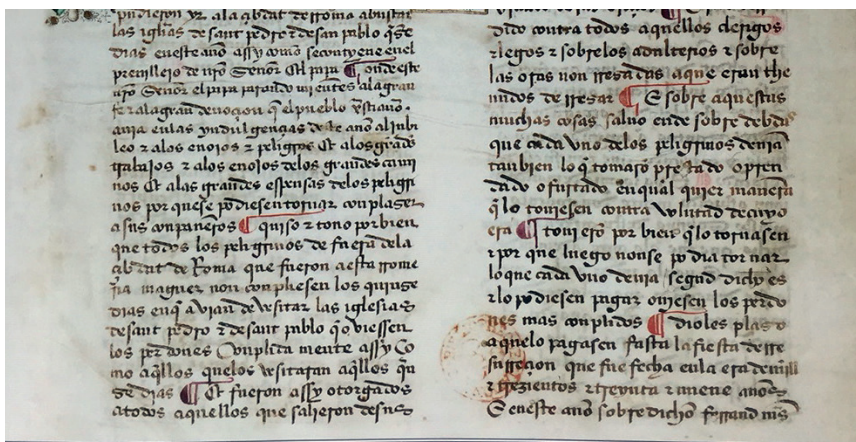 pudieron yr ala çibdat de rroma a visitar
las iglias de sant pedro z de sant pablo q̃ze
dias en este año assy como se contyene en el
preuillejo de nr̃o señor El papa ¶ onde este
nr̃o Señor el papa parando mientes ala gran
fe z ala gran deuoçion q̃ el pueblo xp̃stiano
auia en las yndulgençias deste año al iubi
leo z alos enoios z peligros Et alos grãdes
trabajos z alos enoios delos grandes cami
nos Et alas grandes espensas delos peligri
nos por que se podiesen tornar con plazer
a sus conpañeros ¶ quiso z touo por bien
que todos los peligrinos de fuera dela
çibdat de Roma que fueron a esta rrome
ria maguer non conpliesen los quinze
dias en q̃ auian de vesitar las iglesias
de sant pedro z de sant pablo q̃ ouiessen
los perdones Conplida mente assy Co
mo aq̃llos que los vesitaran aq̃llos qui
ze dias ¶ Et fueron assy otorgados
a todos aquellos que salieron de sus
dido contra todos aquellos clerigos
z legos z sobre los adulterios z sobre
las oras non rrezadas a que eran the
nudos de rrezar ¶ E sobre aquestas
muchas cosas saluo ende sobre debdas
que cada vno delos peligrinos deuia
tanbien lo q̃ tomarõ prestado o pren
dado o furtado en qual quier manera
q̃ lo touiesen contra volũtad de cuyo
era ¶ touierõ por bien q̃ lo tornasen
z por que luego non se podia tornar
lo que cada vno deuia segũd dicho es
z lo podiesen pagar ouiesen los perdo
nes mas conplidos ¶ Dioles plazo
a que lo pagasen fasta la fiesta de rre
surreçion que fue fecha en la era de mill
z trezientos z treynta z nueue años
E en este año sobre dicho ferrand mĩs